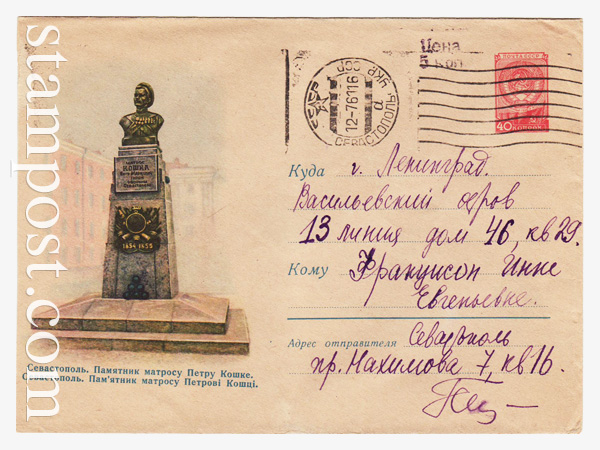 stampost.com
Цена
5 коп
ПОЧТА СССР
40 КОПЕЕК
УКР ССР
12-7-61 16
СЕВАСТОПОЛЬ
КОШКА
1854-1855
Куда г. Ленинград.
Васильевский остров
13 линия дом 46, кв 29.
Кому Францисон Инне
Евгеньевне.
Адрес отправителя Севастополь
пр. Нахимова 7, кв 16.
Севастополь. Памятник матросу Петру Кошке.
Севастополь. Пам'ятник матросу Петрові Кошці.